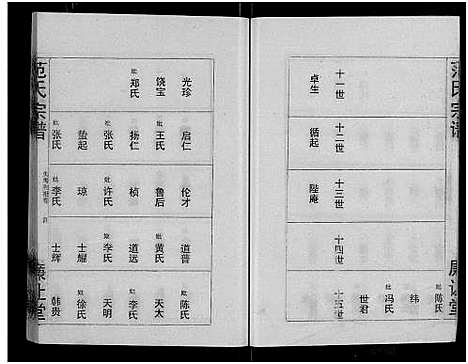 范氏宗谱
十一世
卓生
十二世
循起
十三世
陛庵
十四世
十五世
世君
妣
冯氏
纬
妣
陈氏
光珍
饶宝
妣
郑氏
启仁
妣
王氏
扬仁
妣
张氏
蛰起
妣
张氏
伦才
鲁后
桢
妣
许氏
琼
妣
李氏
道普
妣
黄氏
道远
妣
李氏
士耀
士辉
妣
陈氏
天太
妣
李氏
天明
妣
徐氏
韩贵
范氏宗谱
廉让堂